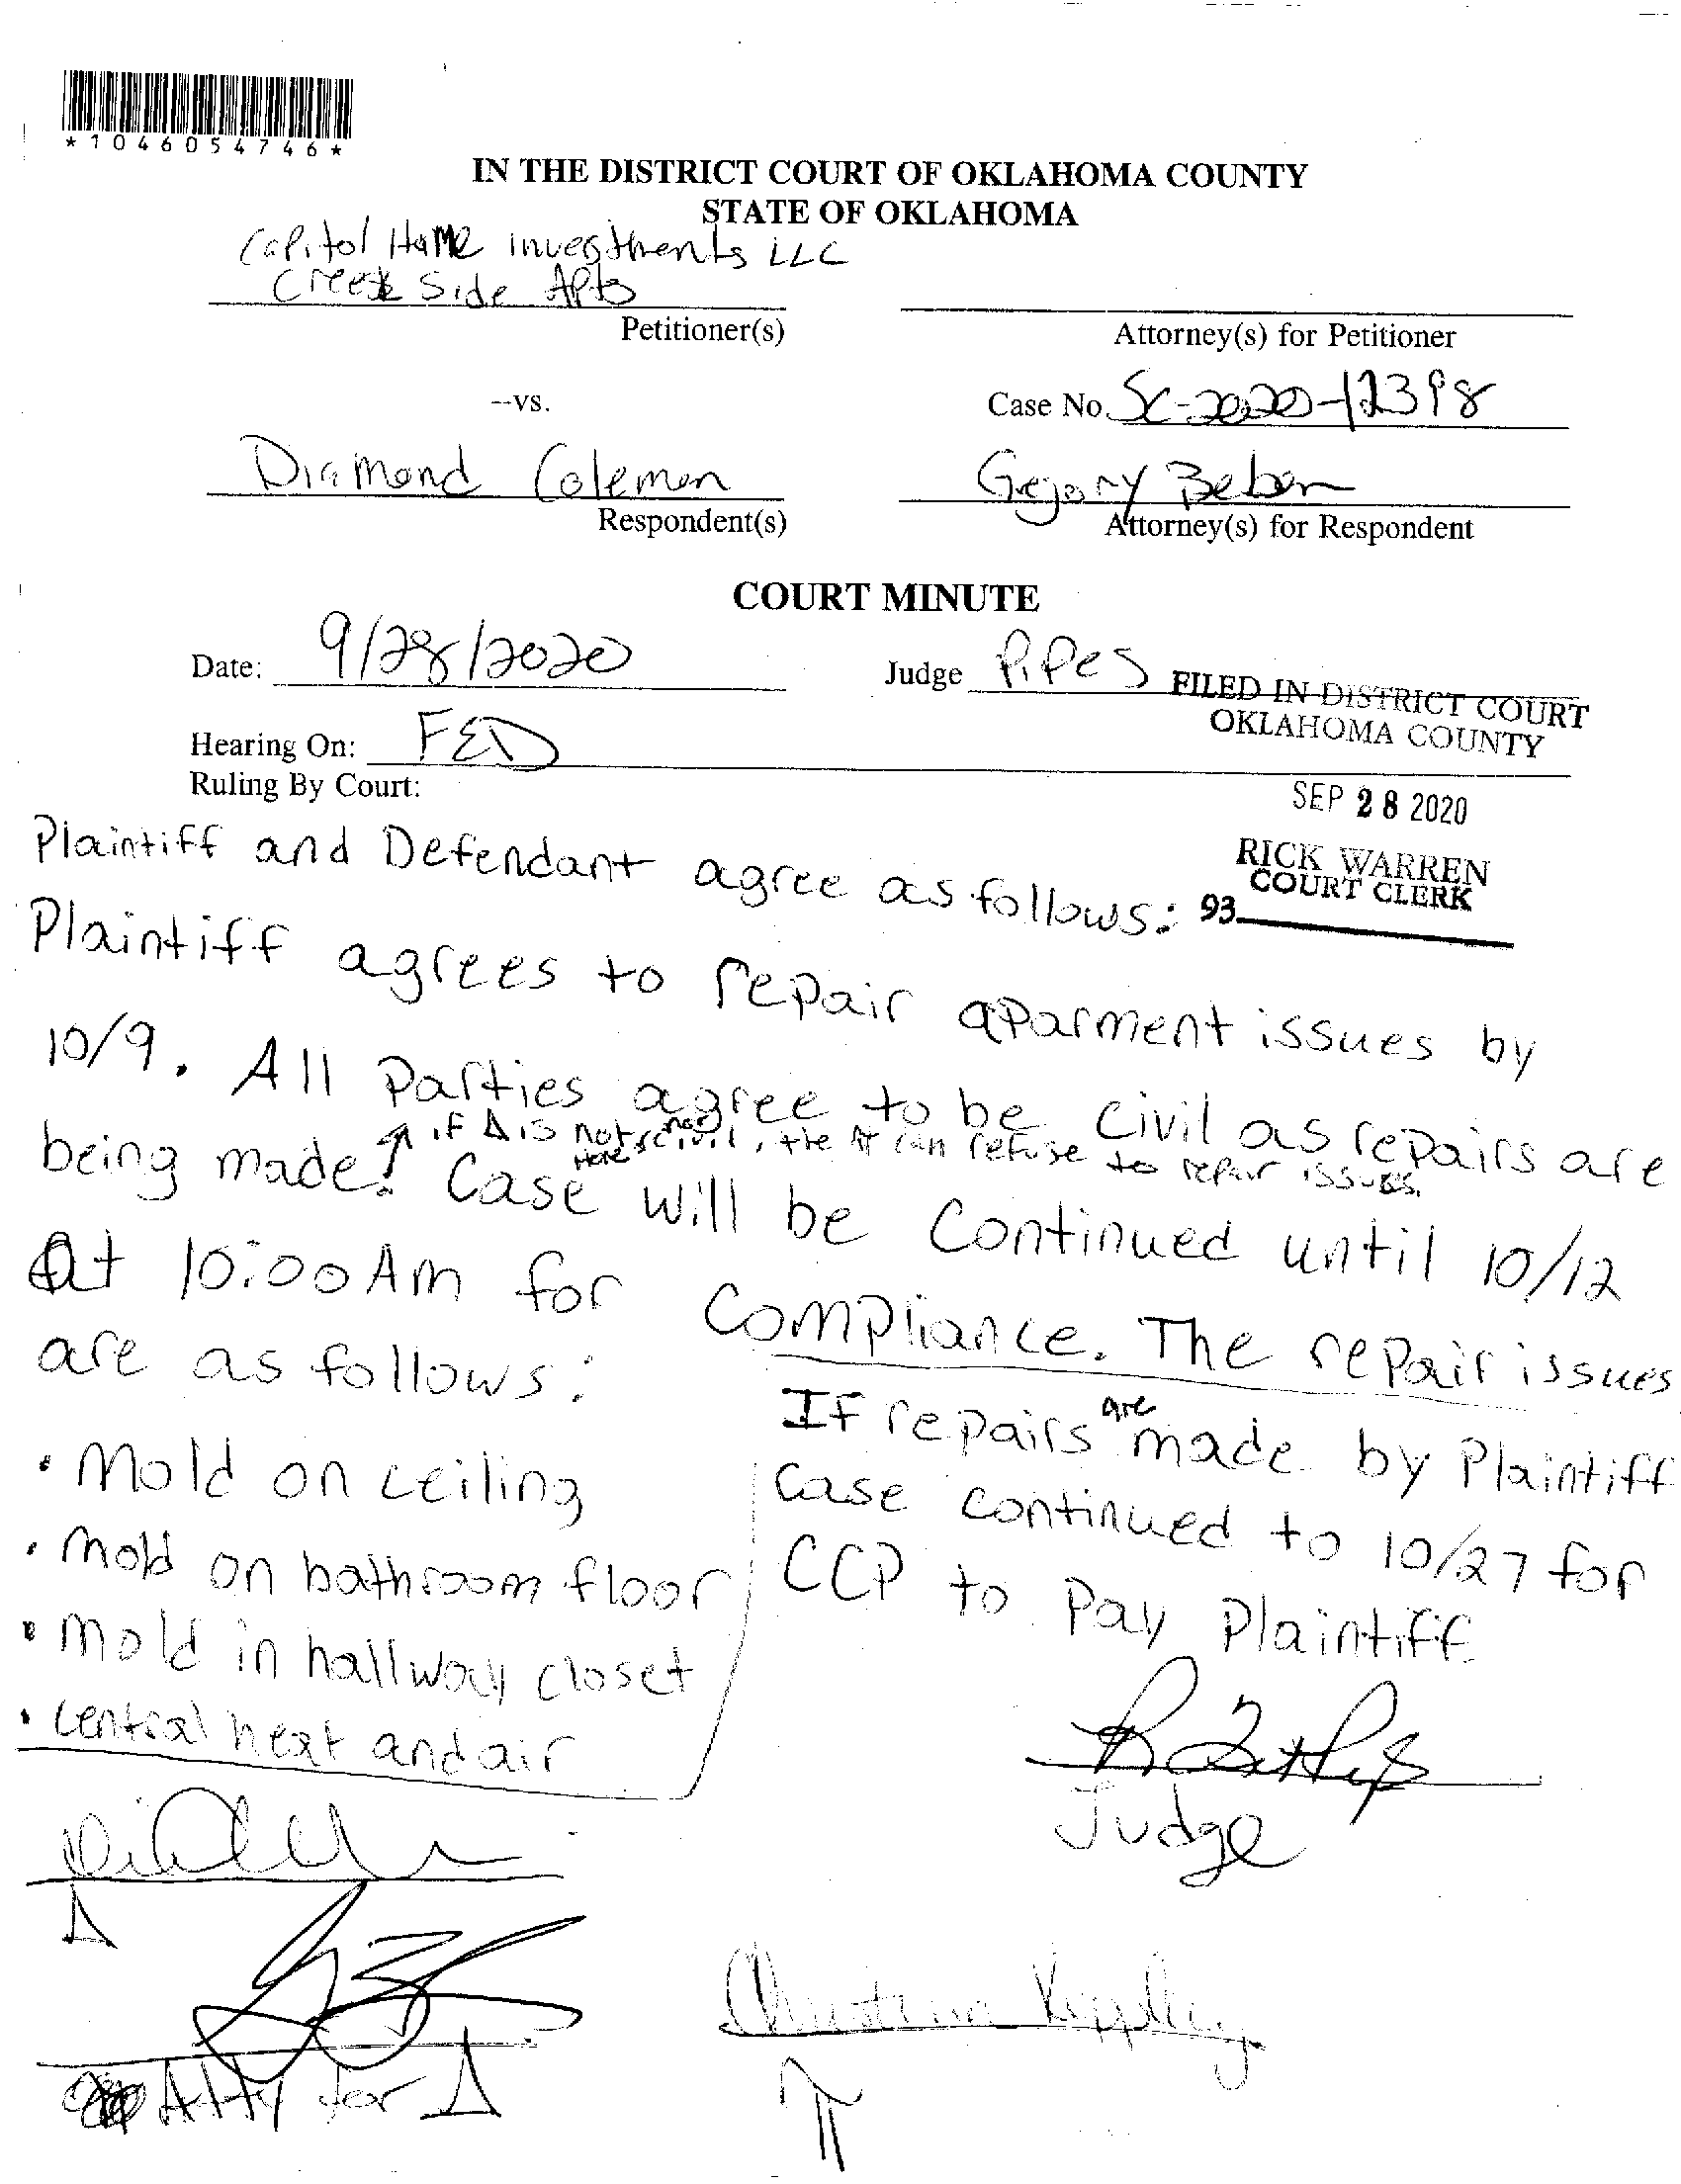 *1046054746*
IN THE DISTRICT COURT OF OKLAHOMA COUNTY
STATE OF OKLAHOMA
Capitol Home investments LLC
Creek Side Apts
Petitioner(s)
Attorney(s) for Petitioner
--vs.
Case No. SC-2020-12398
Diamond Coleman
Respondent(s)
Gregory Beben
Attorney(s) for Respondent
COURT MINUTE
Date: 9/28/2020
Judge PiPes
FILED IN DISTRICT COURT
OKLAHOMA COUNTY
Hearing On: FED
Ruling By Court:
SEP 28 2020
RICK WARREN
COURT CLERK
93
Plaintiff and Defendant agree as follows:
Plaintiff agrees to repair aparment issues by
10/9. All Parties agree to be civil as repairs are
being made. Case will be continued until 10/12
if Δ is not civil, the π can refuse to repair issues.
At 10:00 Am for compliance. The repair issues
are as follows:
• Mold on ceiling
• Mold on bathroom floor
• Mold in hallway closet
• Central heat and air
If repairs are made by Plaintiff
Case continued to 10/27 for
CCP to Pay Plaintiff
Judge
Δ
Atty for Δ
Christina
π